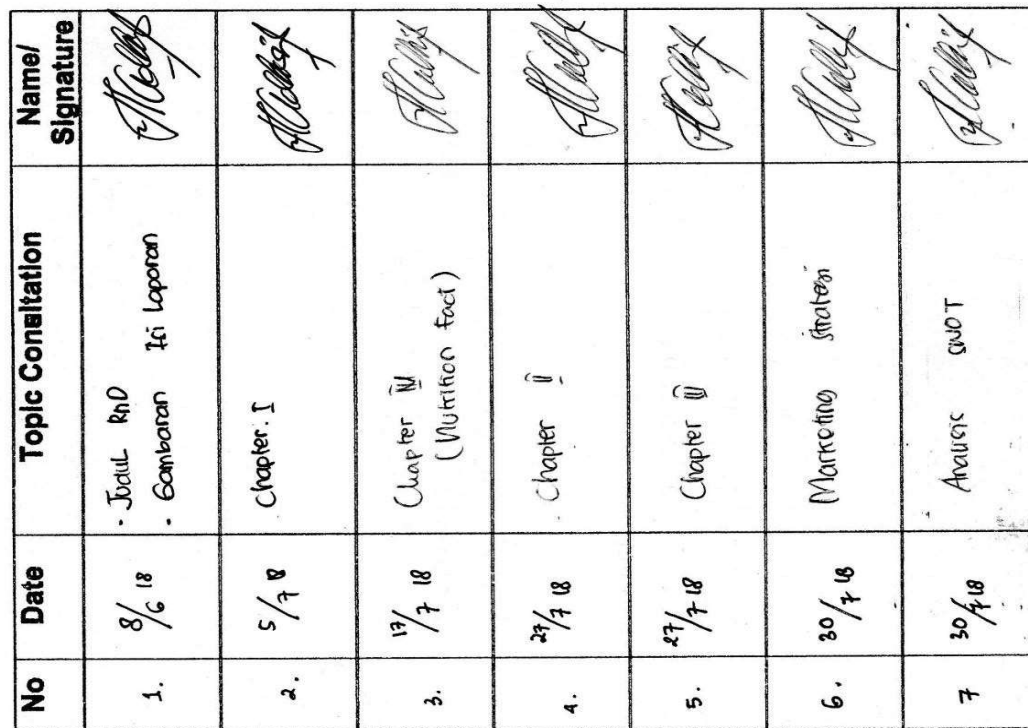 No Date Topic Consltation Name/ Signature
1. 8/6 18 · Judul RnD
· Gambaran Isi Laporan
2. 5/7 18 Chapter. I
3. 17/7 18 Chapter III
(Nutrition Fact)
4. 27/7 18 Chapter II
5. 27/7 18 Chapter III
6. 30/7 18 Marketing Strategi
7 30/7 18 Analisis SWOT